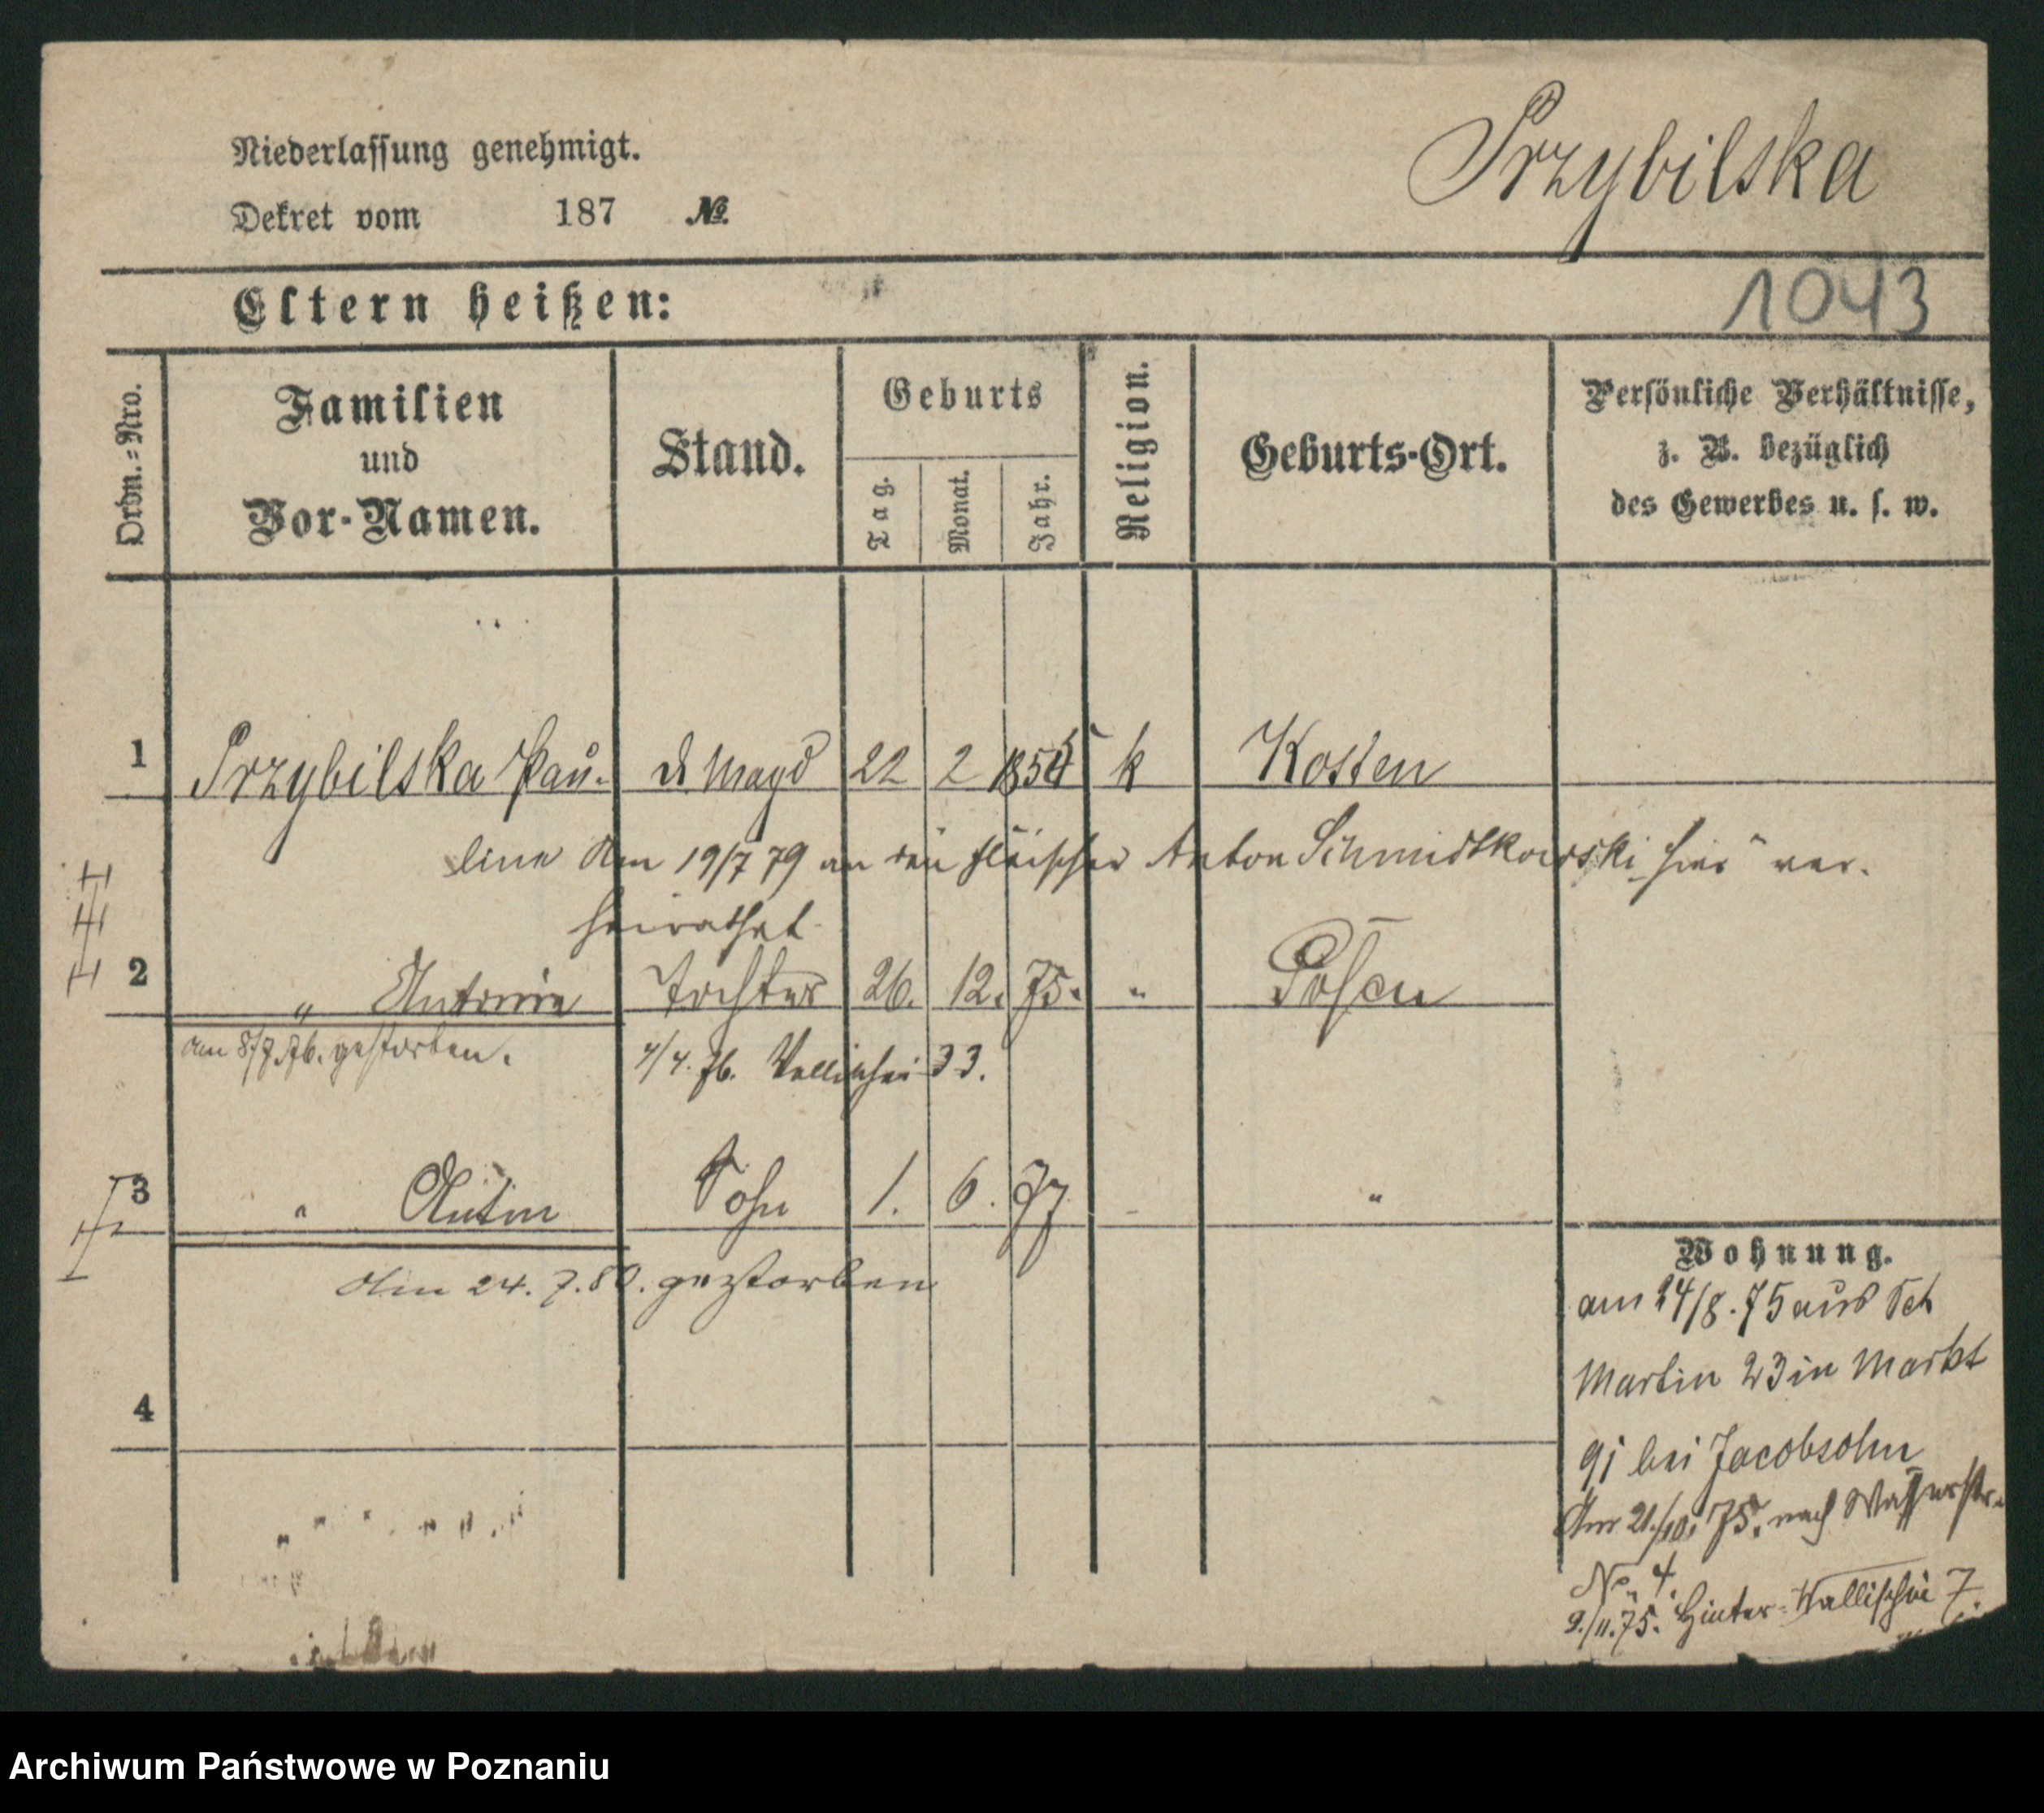 Przybilska
Niederlassung genehmigt.
Dekret vom 187 №.
Eltern heißen:
1043
Ordn.-Nro.
Familien
und
Vor-Namen.
Stand.
Geburts
Tag.
Monat.
Jahr.
Religion.
Geburts-Ort.
Persönliche Verhältnisse,
z. B. bezüglich
des Gewerbes u. s. w.
1 Przybilska Pau- d. Magd 22 2 k Kosten
line Am 19/7 79 an den Fleischer Anton Schmidtkowski hier ver-
heirathet
2 " Antonie Tochter 26. 12. 75. " Posen
am 8/7.76. gestorben.
4/4. 76. Wallischei 33.
3 " Anton Sohn 1. 6. 77 "
Am 24. 7. 80. gestorben
4
Wohnung.
am 24/8. 75 aus Sct
Martin 23 in Markt
91 bei Jacobsohn
Am 21./10. 75. nach Wasserstr.
No. 4.
9./11. 75. Hinter-Wallischei 7.
Archiwum Państwowe w Poznaniu